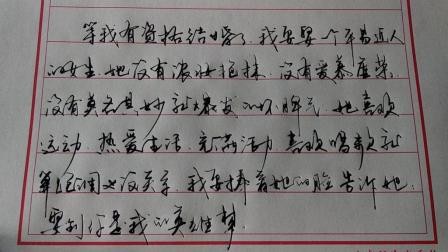 等我有资格结婚了，我要娶一个平易近人
的女生，她没有浓妆艳抹，没有爱慕虚荣，
没有莫名其妙就爆发的坏脾气，她喜欢
运动，热爱生活，充满活力，喜欢唱歌就
算走调也没关系，我要捧着她的脸告诉她：
娶到你是我的英雄梦